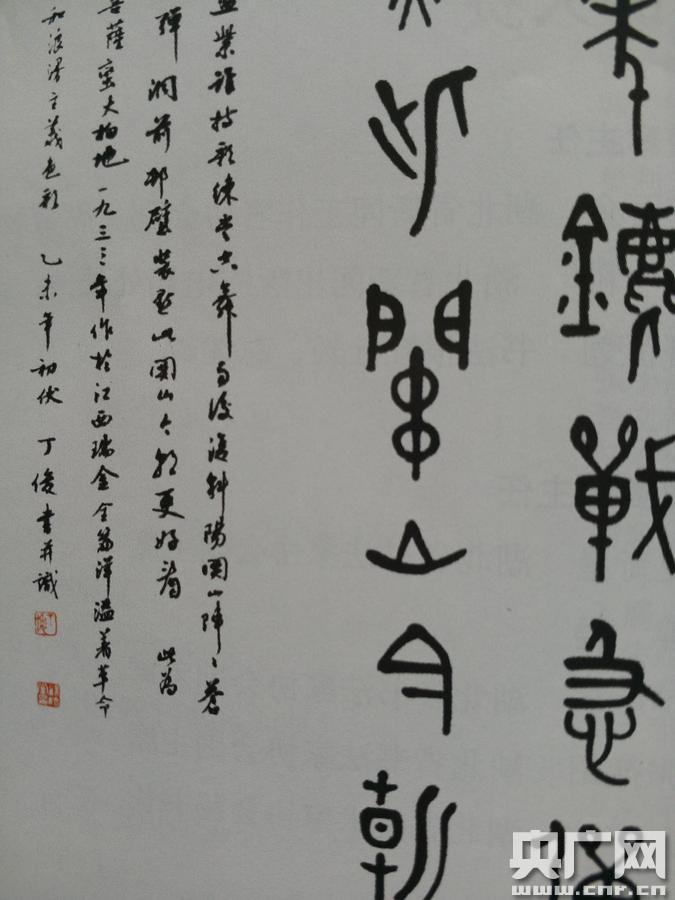 年鏖戰急彈
此關山今朝
藍紫誰持彩練當空舞雨後復斜陽關山陣々蒼
彈洞前邨壁裝點此關山今朝更好看 此為
菩薩蠻大柏地一九三三年作於江西瑞金全篇洋溢着革命
和浪漫主義色彩 乙未年初伏 丁俊書并識
央广网
www.cnr.cn